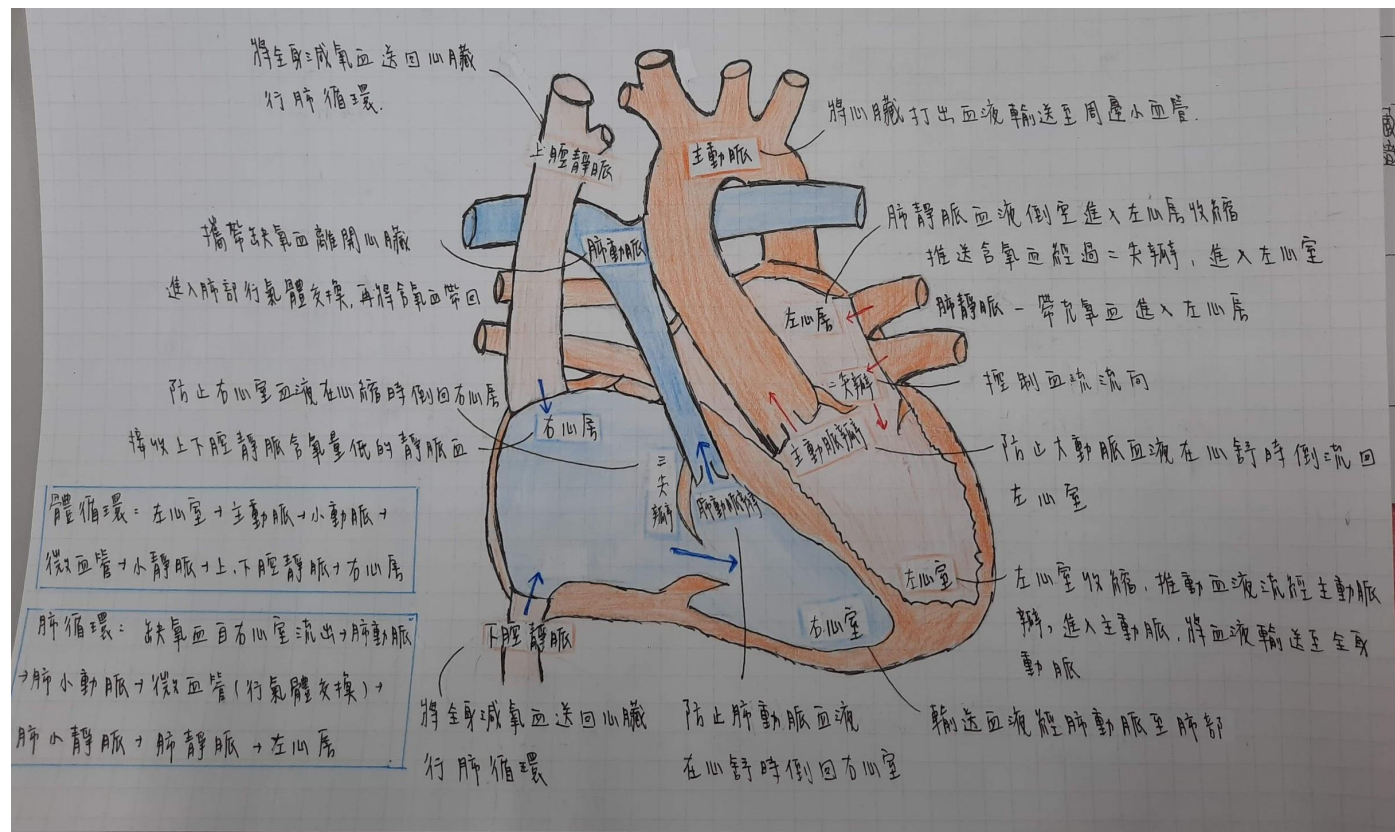 將全身減氧血送回心臟
行肺循環.
上腔靜脈
主動脈
將心臟打出血液輸送至周邊小血管.
攜帶缺氧血離開心臟
進入肺部行氣體交換,再將含氧血帶回
肺動脈
肺靜脈血液倒至進入左心房收縮
推送含氧血經過二尖瓣,進入左心室
左心房
肺靜脈-帶充氧血進入左心房
二尖瓣
控制血流流向
防止右心室血液在心縮時倒回右心房
右心房
接收上下腔靜脈含氧量低的靜脈血
三尖瓣
肺動脈瓣
主動脈瓣
防止大動脈血液在心舒時倒流回
左心室
體循環:左心室→主動脈→小動脈→
微血管→小靜脈→上、下腔靜脈→右心房
肺循環:缺氧血自右心室流出→肺動脈
→肺小動脈→微血管(行氣體交換)→
肺小靜脈→肺靜脈→左心房
左心室
左心室收縮,推動血液流經主動脈
瓣,進入主動脈,將血液輸送至全身
動脈
右心室
下腔靜脈
將全身減氧血送回心臟
行肺循環
防止肺動脈血液
在心舒時倒回右心室
輸送血液經肺動脈至肺部